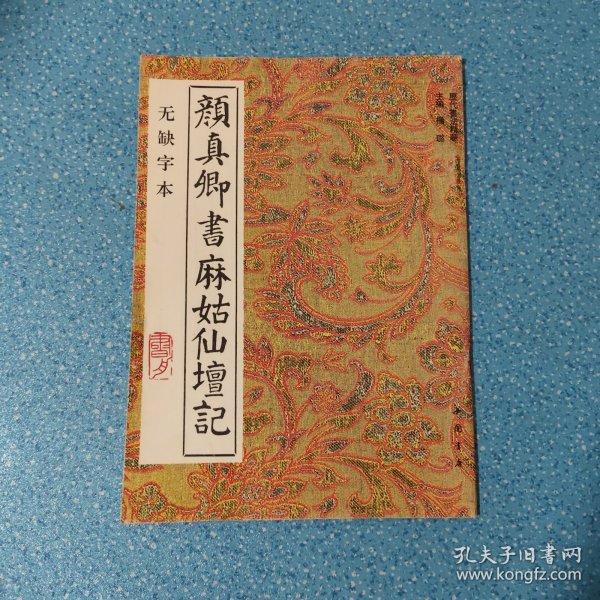 顏真卿書麻姑仙壇記
无缺字本
中国书店
孔夫子旧书网
www.kongfz.com